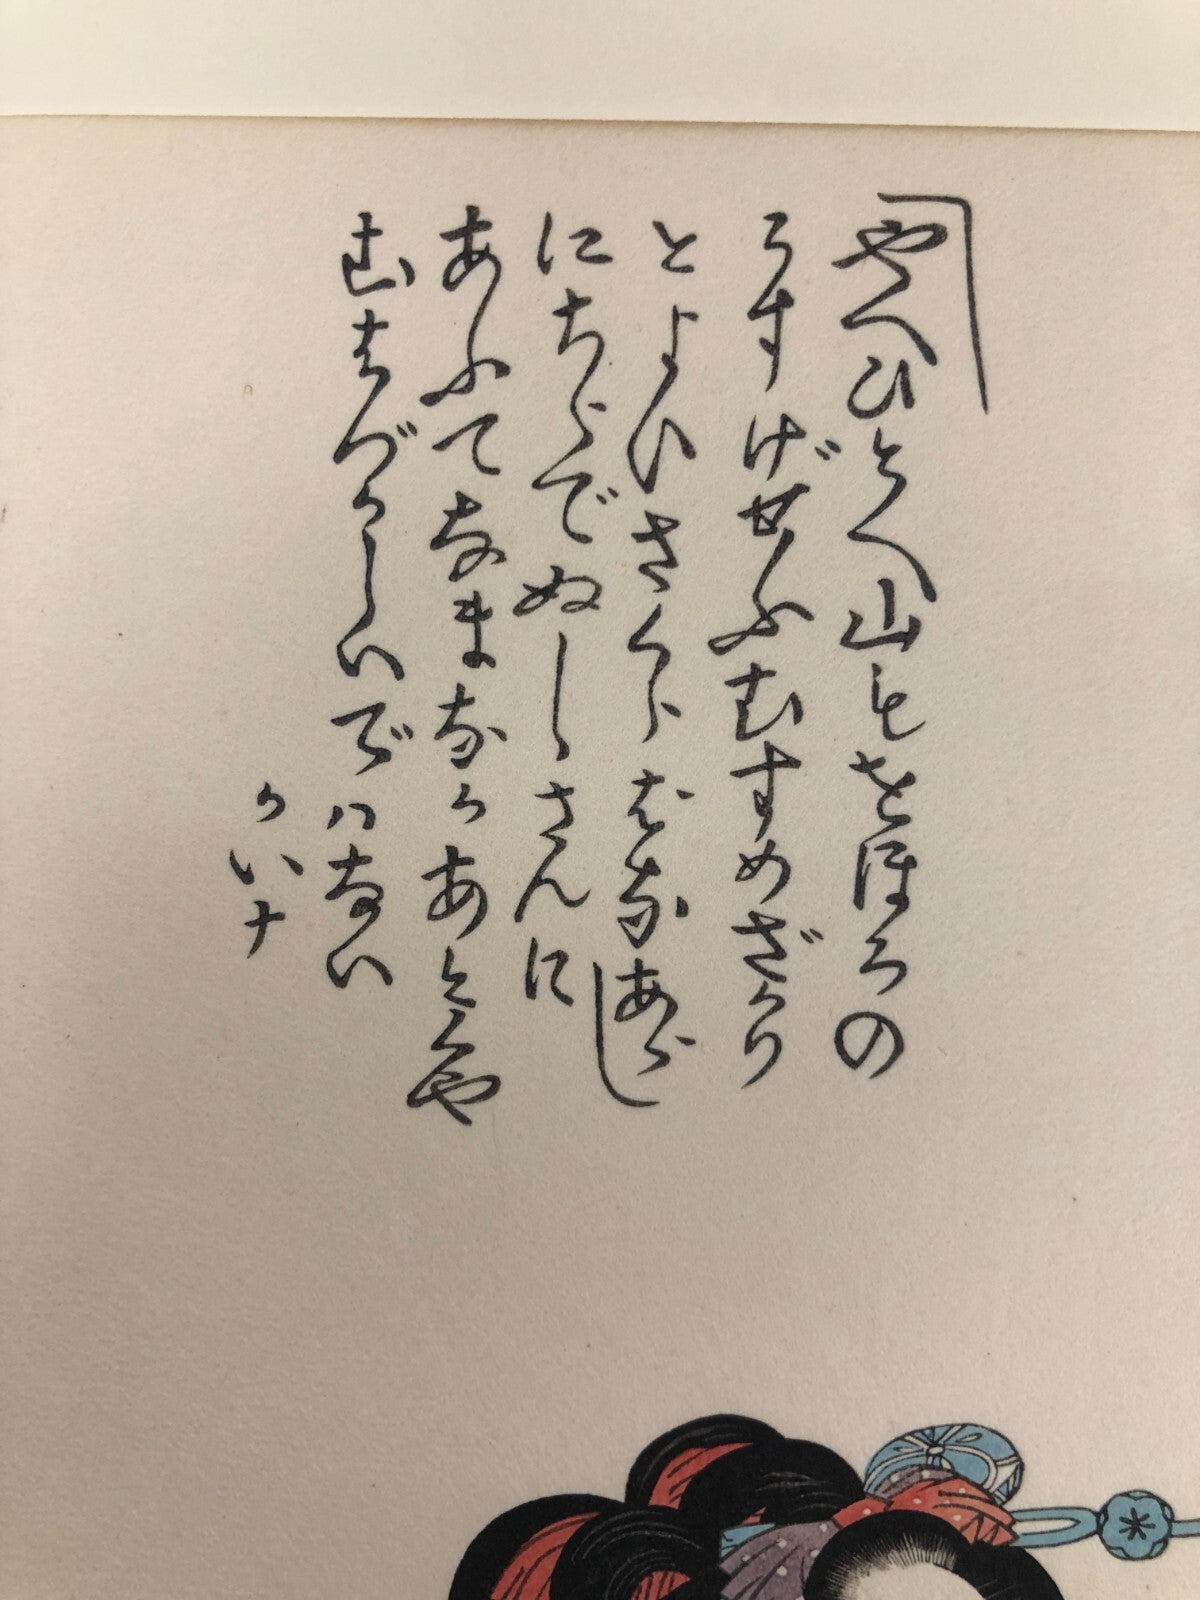 「やへひとへ山もをほろの
うすげせふむすめざかり
とよいさくらばなあらし
にちらでぬしさんに
あふてなまなかあとくや
むはづかしいでハない
かいナ